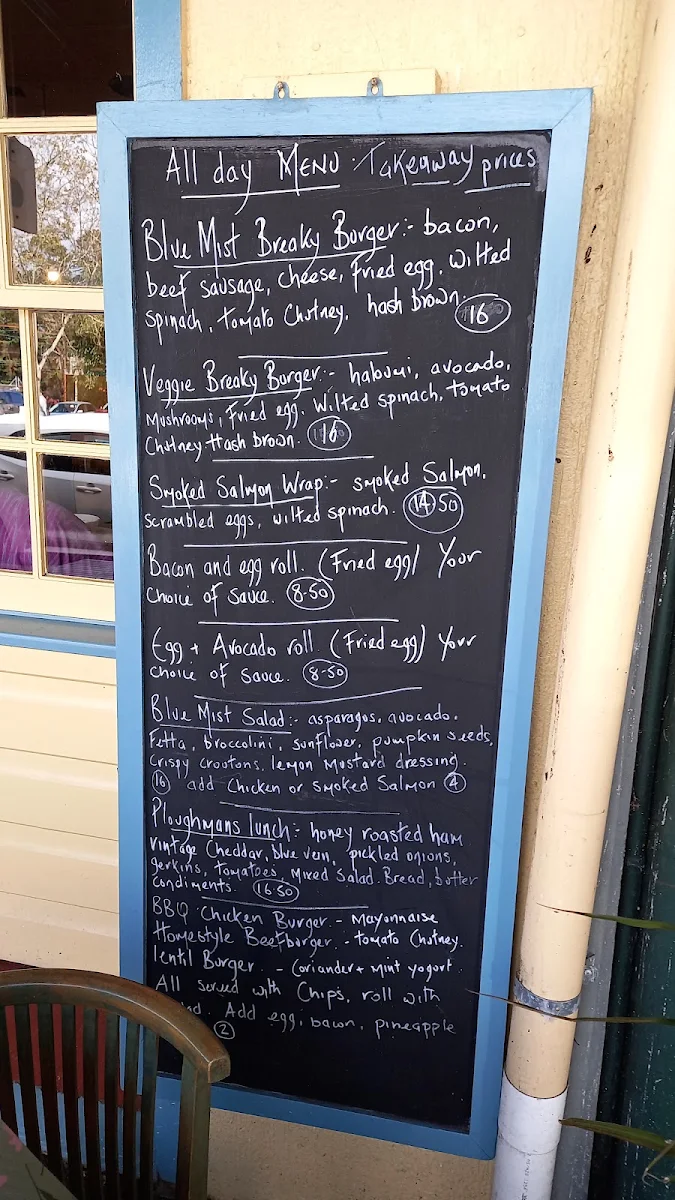 All day MENU : Takeaway prices
Blue Mist Breaky Burger:- bacon,
beef sausage, cheese, fried egg, wilted
spinach, tomato Chutney, hash brown.
16
Veggie Breaky Burger:- haloumi, avocado,
Mushrooms, Fried egg. Wilted spinach, tomato
Chutney Hash brown. 16
Smoked Salmon Wrap:- smoked Salmon,
Scrambled eggs, wilted spinach. 14.50
Bacon and egg roll. (Fried egg) Your
choice of sauce. 8-50
Egg + Avocado roll (Fried egg) Your
choice of sauce. 8-50
Blue Mist Salad:- asparagus, avocado,
Fetta, broccolini, sunflower, pumpkin seeds,
Crispy croutons, lemon Mustard dressing.
16 add Chicken or smoked Salmon 4
Ploughmans lunch:- honey roasted ham
vintage Cheddar, blue vein, pickled onions,
gerkins, tomatoes, Mixed Salad. Bread, butter
Condiments. 16.50
BBQ Chicken Burger - Mayonnaise
Homestyle Beefburger. - tomato Chutney.
lentil Burger. - Coriander + Mint yogurt
All served with Chips, roll with
Add egg, bacon, pineapple
2